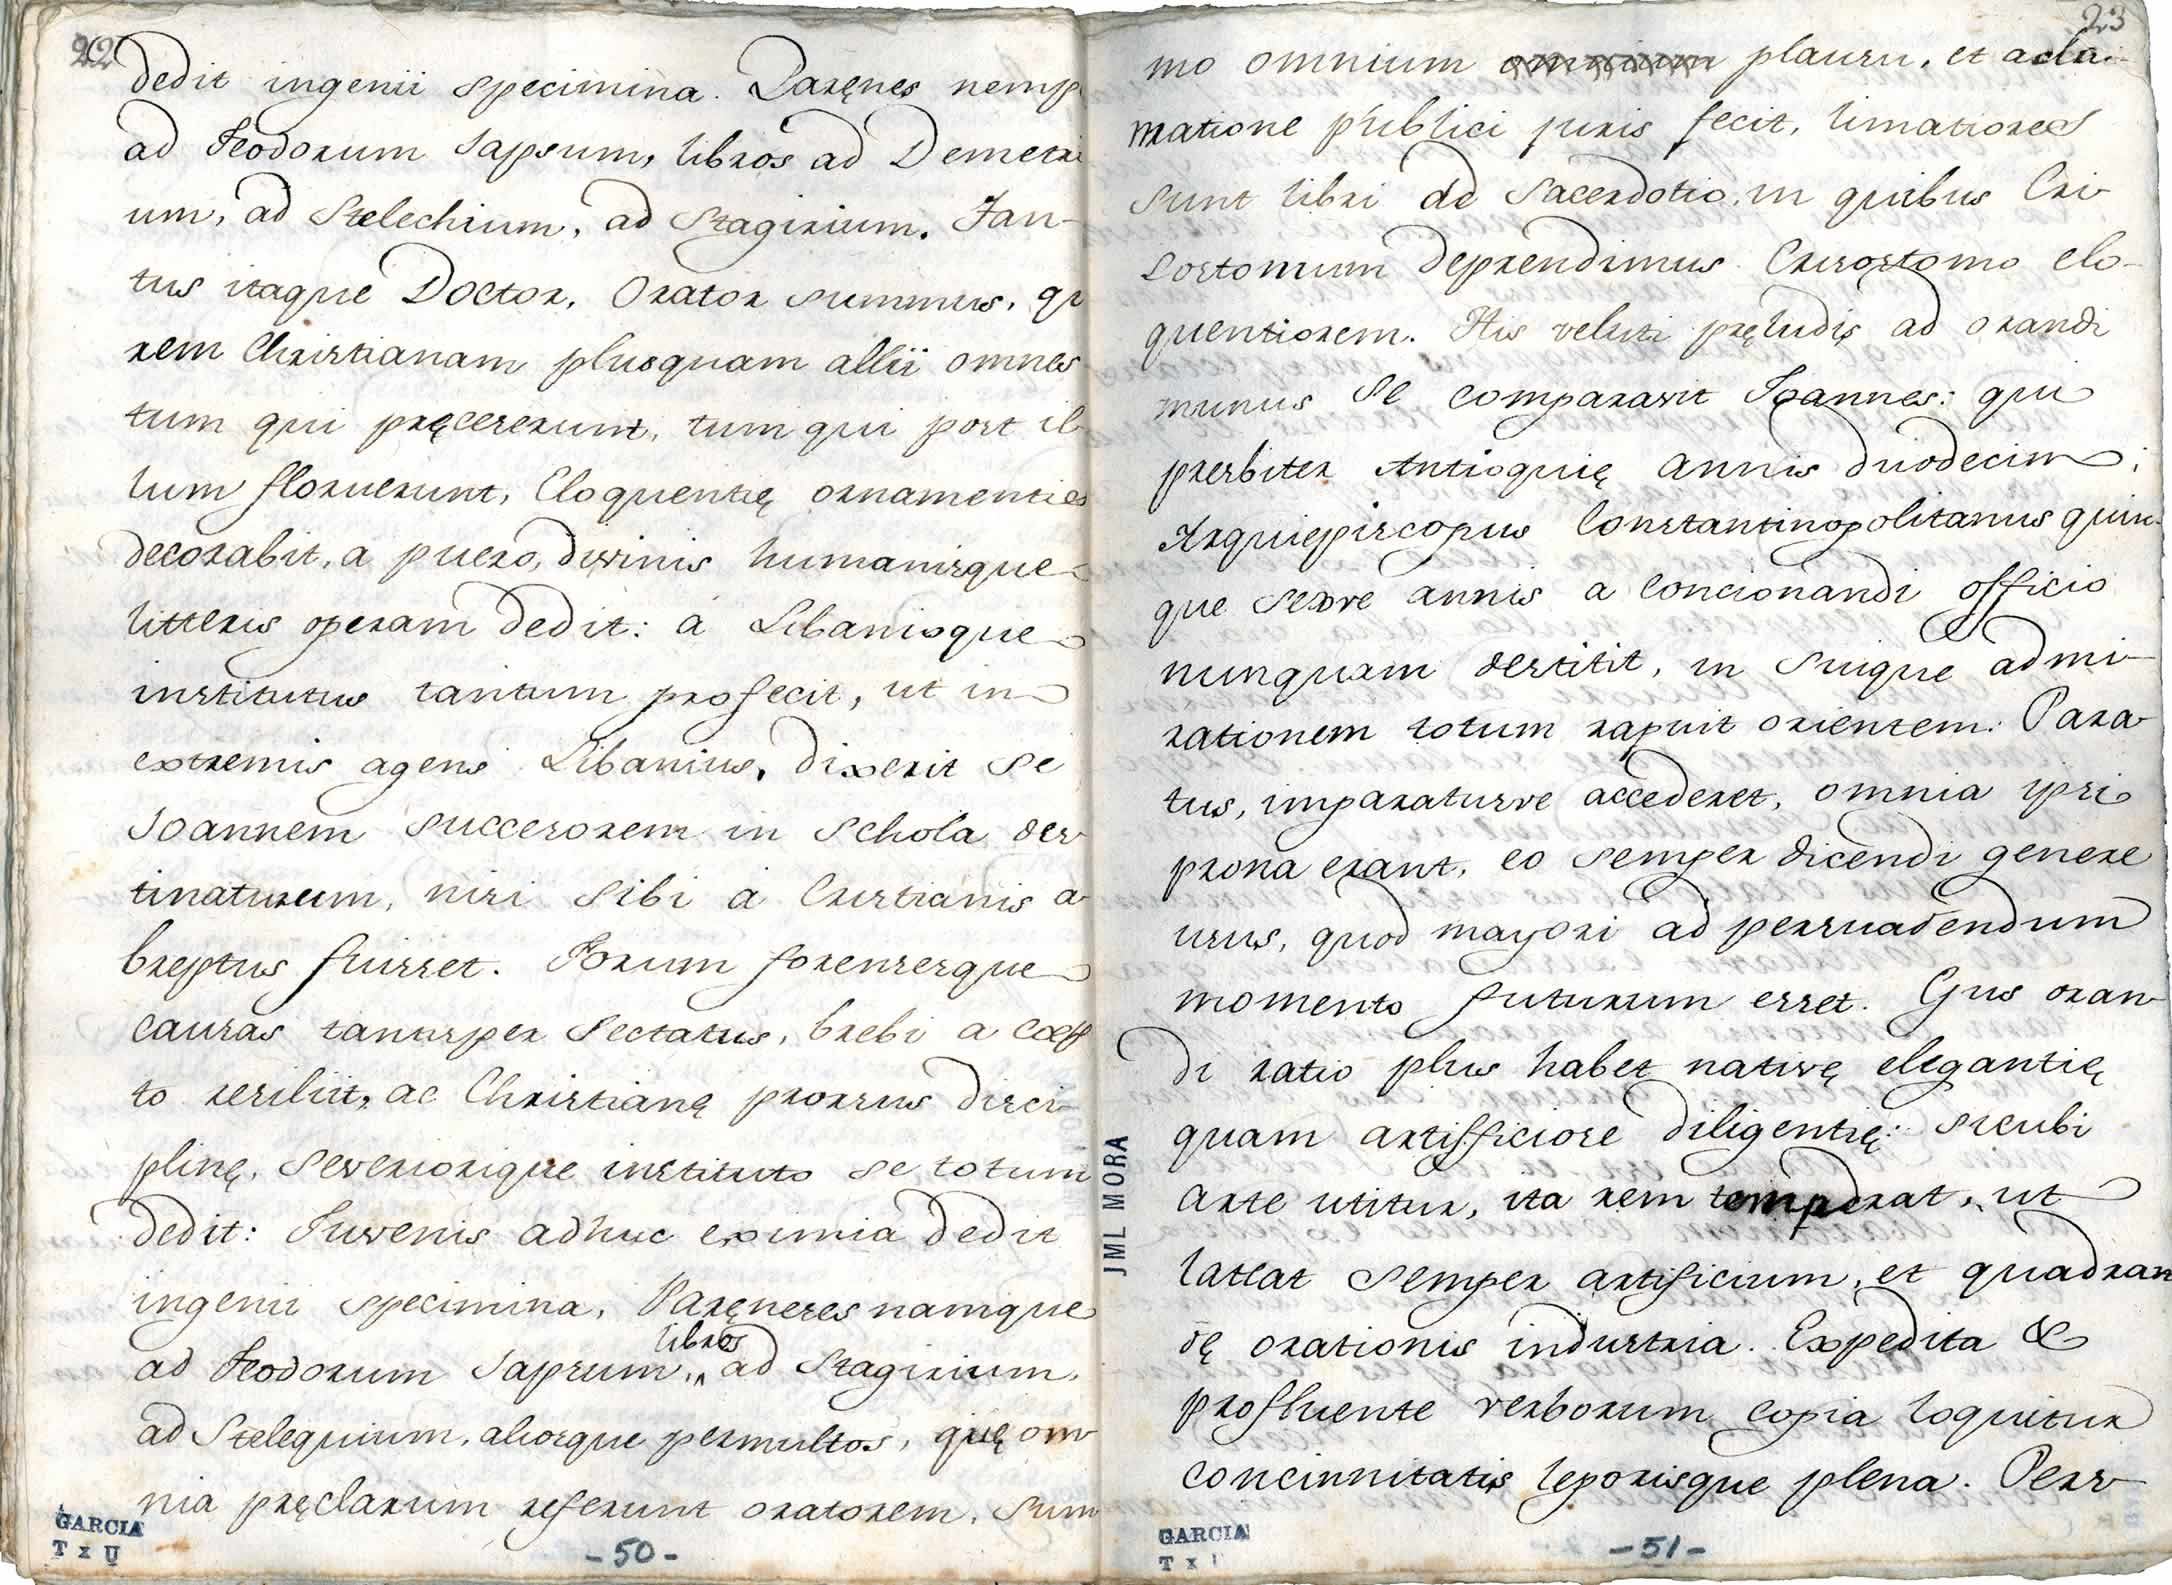 22
dedit ingenii specimina. Paręnes nemp
ad Teodorum Lapsum, libros ad Demetri
um, ad Stelechium, ad Stagirium. Tan-
tus itaque Doctor, Orator summus, qi
rem Christianam plusquam allii omnes
tum qui pręceserunt, tum qui post il-
lum floruerunt, Eloquentię ornamenties
decorabit, a puero, divinis humanisque
litteris operam dedit: á Libanioque
institutus tantum profecit, ut in
extremis agens Libanius, dixerit se
Joannem succesorem in schola des-
tinaturum, nisi sibi á Cristianis a-
breptus fuisset. Forum forensesque
causas tantisper sectatus, brebi a
to resiliit, ac Christianę prorsus disci-
plinę, severiorique instituto se totum
dedit: Juvenis adhuc eximia dedit
ingenii specimina, Paręneses namque
libros
ad Teodorum Lapsum, ^ ad Stagirium,
ad Stelequium, aliosque permultos, quę om-
nia pręclarum referunt oratorem, sum
GARCIA
T x U
-50-
23
mo omnium omnium plausu, et acla-
matione publici juris fecit, limatiores
sunt libri de Sacerdotio, in quibus Cri-
sostomum deprendimus Crisostomo elo-
quentiorem. His veluti pręludis ad orandi
munus se comparavit Joannes: qui
presbiter Antioquię annis duodecim;
Arquiepiscopus Constantinopolitanus quin-
que sexve annis a concionandi officio
nunquam destitit, in suique admi-
rationem totum rapuit orientem: Para-
tus, imparatusve accederet, omnia ipsi
prona erant, eo semper dicendi genere
usus, quod mayori ad persuadendum
momento futurum esset. Ejus oran-
di ratio plus habet nativę elegantię
quam artifficiose diligentię: sicubi
arte utitur, ita rem temperat, ut
lateat semper artificium, et quadran
dę orationis industria. Expedita &
profluente verborum copia loquitur
concinnitatis leporisque plena. Pers-
JML MORA
GARCIA
T x
-51-